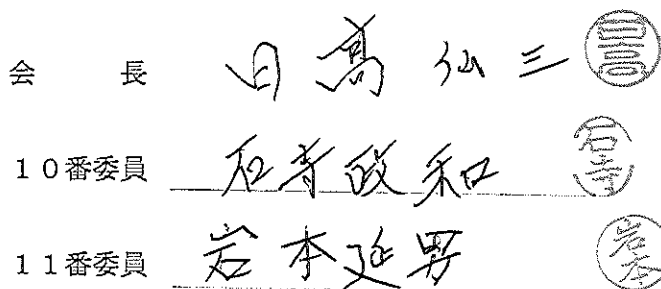 会長 日高仙三 日高
10番委員 石寺政和 石寺
11番委員 岩本延男 岩本